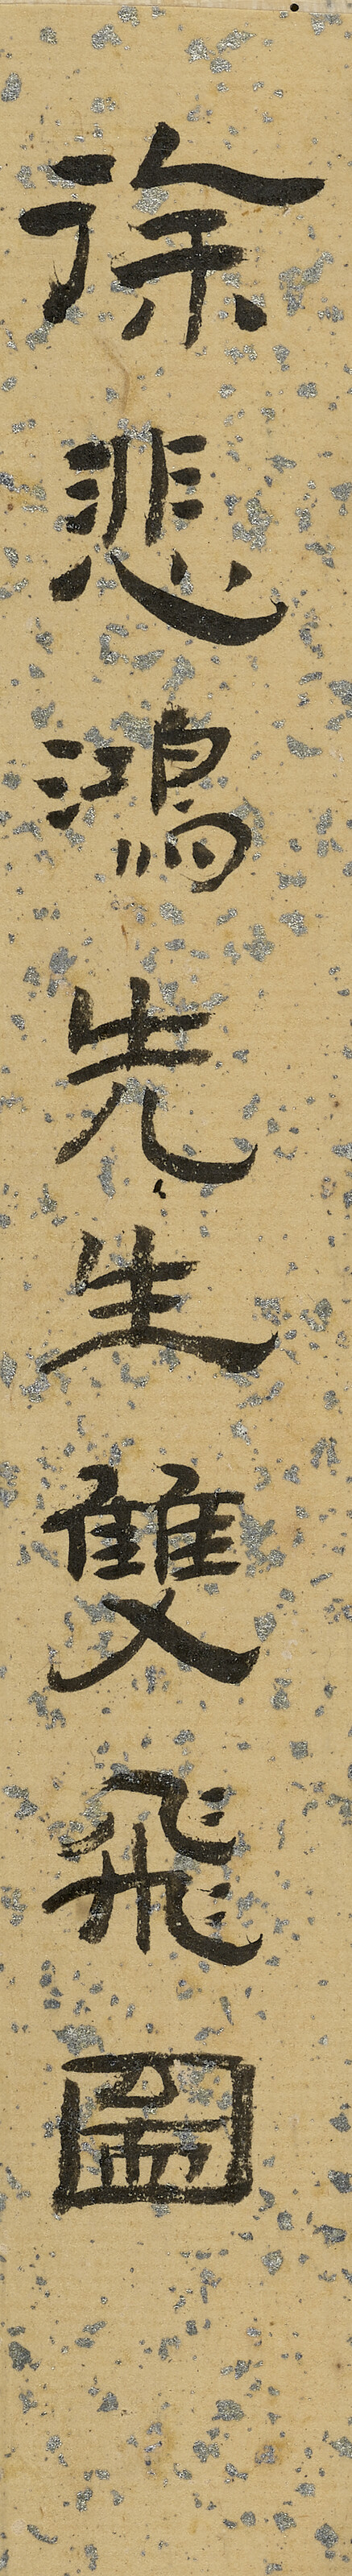 徐悲鴻先生雙飛圖